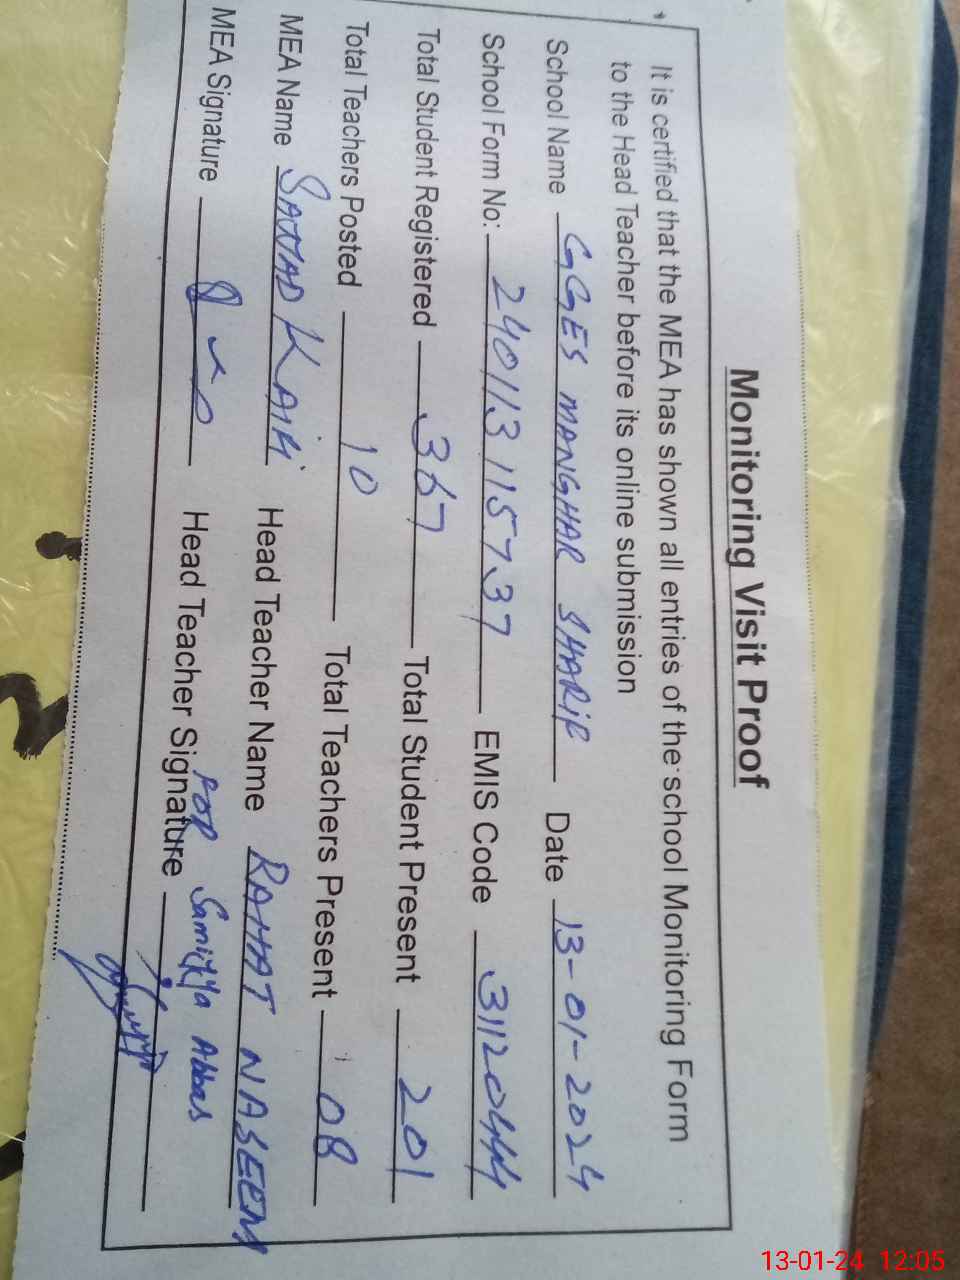 Monitoring Visit Proof
It is certified that the MEA has shown all entries of the school Monitoring Form
to the Head Teacher before its online submission
School Name GGES MANGHAR SHARIF Date 13-01-2024
School Form No: 240113115737 EMIS Code 31120444
Total Student Registered 367 Total Student Present 201
Total Teachers Posted 10 Total Teachers Present 08
MEA Name SAJJAD KAIFI Head Teacher Name RAHAT NASEEM
FOR Samiyya Abbas
MEA Signature Head Teacher Signature
13-01-24 12:05